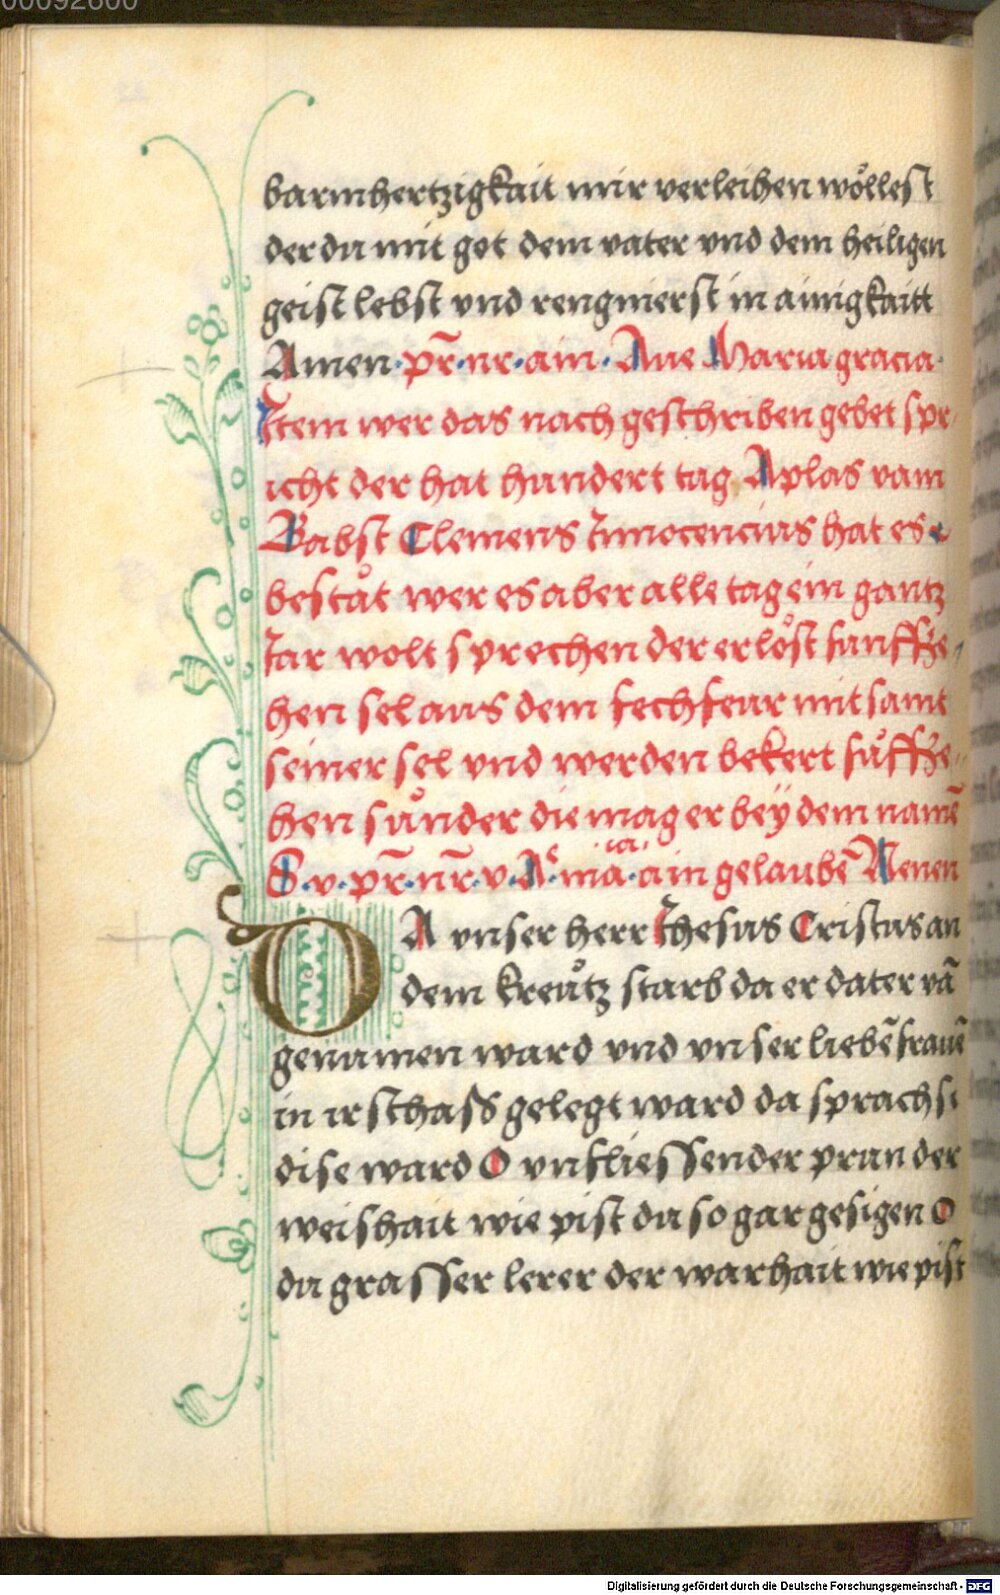 00092600
barmhertzigkait mir verleihen wöllest
der du mit got dem vater vnd dem heiligen
geist lebst vnd rengnierst in ainigkaitt
Amen · pr̄ · nr · ain · Aue Maria gracia ·
Item wer das nach geschriben gebet spr¬
icht der hat hundert tag Aplas vam
Babst Clemens Innocencius hat es
bestät wer es aber alle tag ein gantz
Iar wolt sprechen der erlöst funffze¬
hen sel aus dem fechfeur mit samt
seiner sel vnd werden bekert fuͤffze¬
hen suͤnder die mag er bey dem namē
S · v · pr̄ · nr̄ · v · A^e · ma^ria · ain gelaubē Nenen
DA vnser herr Ihesus Cristus an
dem kreuͤtz starb da er dater vā
genumen ward vnd vnser liebē frauē
in ir schass gelegt ward da sprach si
dise ward O vnfliessender prun der
weishait wie pist du so gar gesigen O
du grasser lerer der warhait wie pist
Digitalisierung gefördert durch die Deutsche Forschungsgemeinschaft - DFG